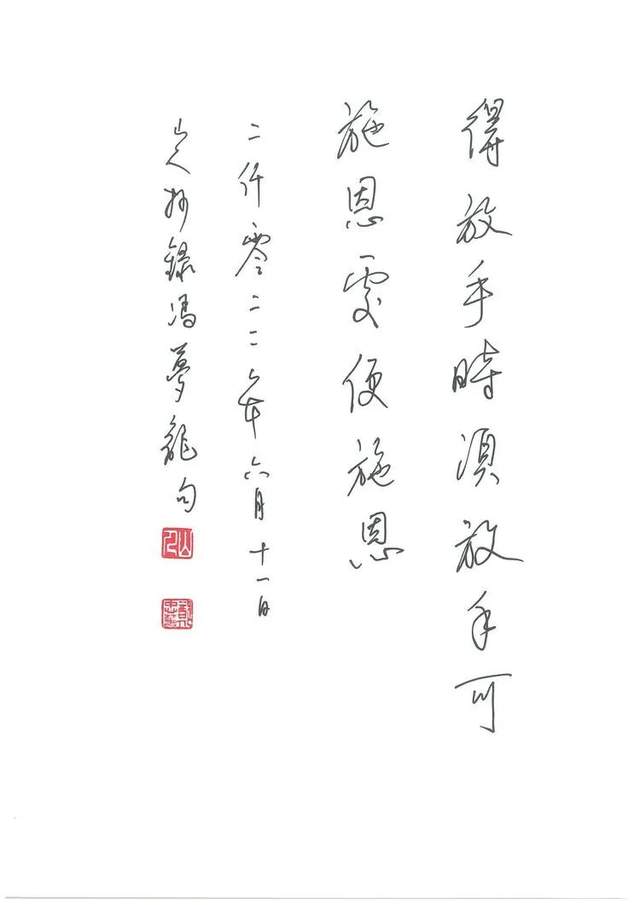 得放手時須放手可
施恩處便施恩
二仟零二二年六月十一日
山人抄錄馮夢龍句
山人